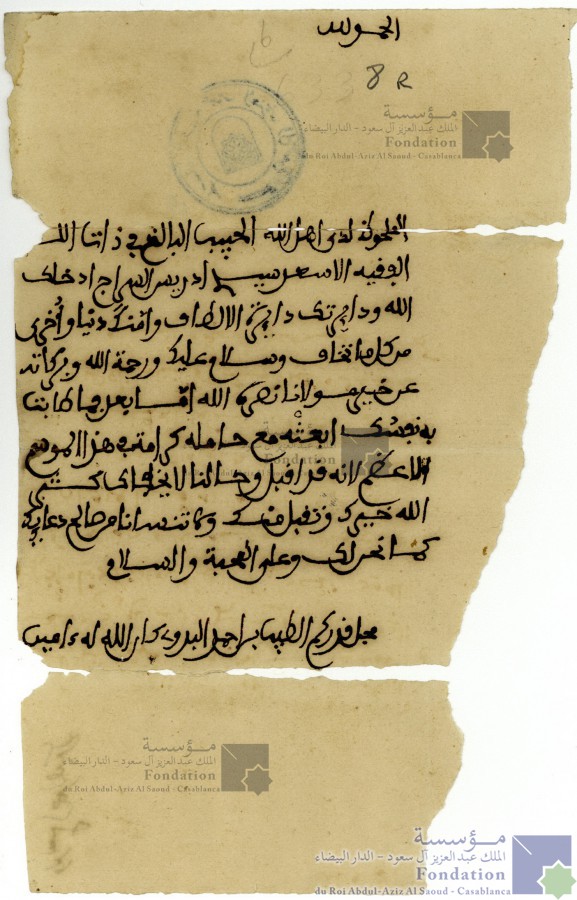 الحمد لله
8 R
مؤسسة
الملك عبد العزيز آل سعود - الدار البيضاء
Fondation
du Roi Abdul-Aziz Al Saoud - Casablanca
لدى اهل الله المحب البالغ في ذات الله
الفقيه الاسعد سيدي ادريس السراج ادخلك
الله ودايرتك دايرة الالطاف وامنك دنيا وأخرى
من كل ما تخاف وسلام عليك ورحمة الله وبركاته
عن خير مولانا نصره الله أما بعد فما طابت
به نفسك ابعثه مع حامله كرامة هذا الموسم
الاعظم لانه قد اقبل وحالنا لا يخفاك كثر
الله خيرك وتقبل منك ولا تنسانا من صالح دعايك
كما نحن لك وعلى المحبة والسلام
مجل قدركم الطيب بن احمد البدوي كان الله له ءامين
مؤسسة
الملك عبد العزيز آل سعود - الدار البيضاء
Fondation
du Roi Abdul-Aziz Al Saoud - Casablanca
مؤسسة
الملك عبد العزيز آل سعود - الدار البيضاء
Fondation
du Roi Abdul-Aziz Al Saoud - Casablanca